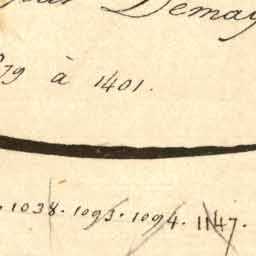 Demay
79 à 1401.
1038. 1093. 1094. 1147.